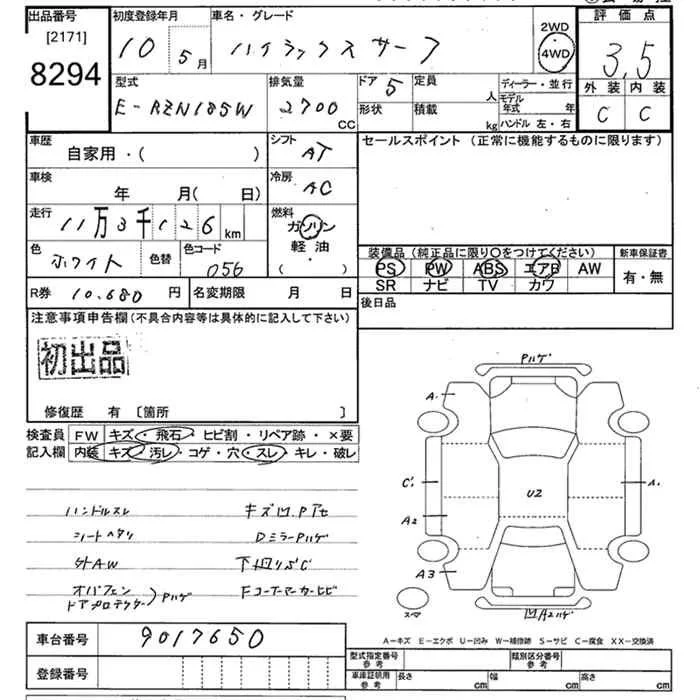 出品番号 初度登録年月 車名・グレード 評価点
[2171]
8294
10 5月 ハイラックスサーフ 2WD 4WD 3.5
型式 排気量 ドア 定員 ディーラー・並行 外装 内装
E-RZN185W 2700 CC 5 人 モデル年式 年 C C
形状 積載 kg ハンドル 左・右
車歴 シフト セールスポイント (正常に機能するものに限ります)
自家用・( ) AT
車検 冷房
年 月( 日) AC
走行 燃料
11万3千126km ガソリン
軽油
( )
色 色替 色コード
ホワイト 056
装備品(純正品に限り○をつけてください) 新車保証書
PS PW ABS エアB AW 有・無
SR ナビ TV カワ
R券 10.680円 名変期限 月 日 後日品
注意事項申告欄(不具合内容等は具体的に記入して下さい)
初出品
修復歴 有 〔箇所 〕
検査員記入欄 FW キズ・飛石・ヒビ割・リペア跡・×要
内装 キズ・汚レ・コゲ・穴・スレ・キレ・破レ
ハンドルスレ キズ凹Pアセ
シートヘタリ DミラーPハゲ
外AW
オバフェン ドアプロテクター )Pハゲ Fコーナーマーカーヒビ
Pハゲ
A.
C'.
U2
A.
A2
A3
スペア
凹A2ハゲ
A-キズ E-エクボ U-凹み W-補修跡 S-サビ C-腐食 XX-交換済
車台番号 9017650
登録番号
型式指定番号 参考 類別区分番号 参考
車庫証明用 参考 長さ cm 幅 cm 高さ cm